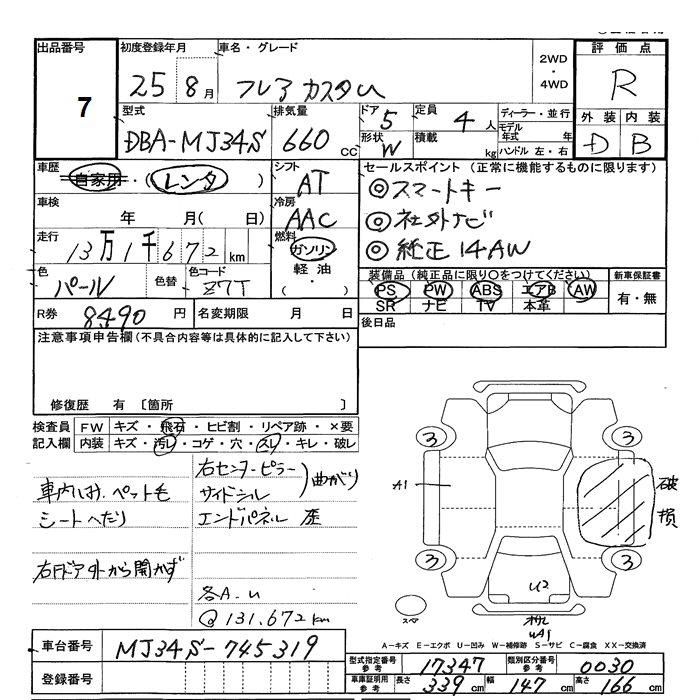 出品番号
7
初度登録年月
25 8月
車名・グレード
フレア カスタム
2WD
・
4WD
評価点
R
外装 内装
D B
型式
DBA-MJ34S
排気量
660 cc
ドア 5
形状 W
定員 4人
積載 kg
ディーラー・並行
モデル年式 年
ハンドル 左・右
車歴
自家用・(レンタ)
シフト
AT
車検
年 月( 日)
冷房
AAC
走行
13万1千672km
燃料
ガソリン
軽油
( ・ )
色
パール
色替
色コード
Z7T
R券 8,490円
名変期限 月 日
セールスポイント(正常に機能するものに限ります)
◎スマートキー
◎社外ナビ
◎純正14AW
装備品(純正品に限り○をつけてください)
PS PW ABS エアB AW
SR ナビ TV 本革
新車保証書
有・無
後日品
注意事項申告欄(不具合内容等は具体的に記入して下さい)
修復歴 有〔箇所 〕
検査員記入欄
FW キズ・飛石・ヒビ割・リペア跡・×要
内装 キズ・汚レ・コゲ・穴・スレ・キレ・破レ
車内はお、ペット毛
シートへたり
右Fドア外から開かず
右センターピラー
サイドシル
曲がり
エンドパネル 歪
各A.U
@131,672km
3
3
3
3
A1
破損
U2
スペア
WA1
A-キズ E-エクボ U-凹み W-補修跡 S-サビ C-腐食 XX-交換済
車台番号 MJ34S-745319
登録番号
型式指定番号参考 17347
類別区分番号参考 0030
車庫証明用参考 長さ 339cm 幅 147cm 高さ 166cm